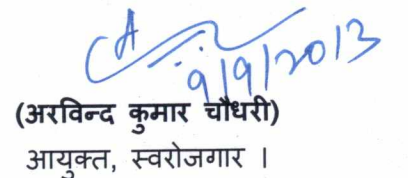 9/9/2013
(अरविन्द कुमार चौधरी)
आयुक्त, स्वरोजगार ।